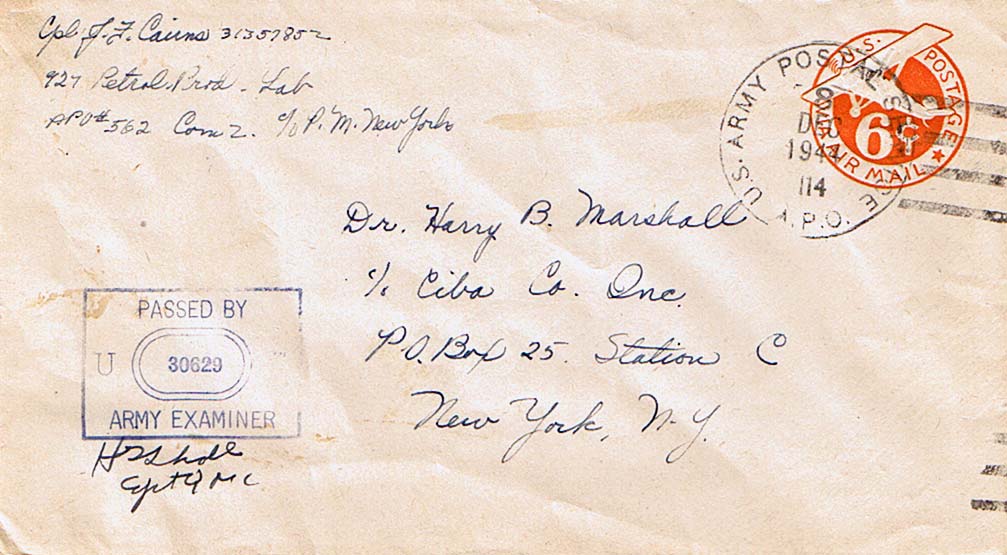 Cpl J. F. Cairns 31357852
927 Petrol. Prod. Lab
APO# 562 Com Z. c/o P. M. New York
U.S. POSTAGE
6¢
AIR MAIL
U.S. ARMY POSTAL SERVICE
DEC
1944
114
A.P.O.
Dr. Harry B. Marshall
c/o Ciba Co. Inc.
P.O. Box 25. Station C
New York, N.Y.
PASSED BY
U 30629
ARMY EXAMINER
Cpt QMC